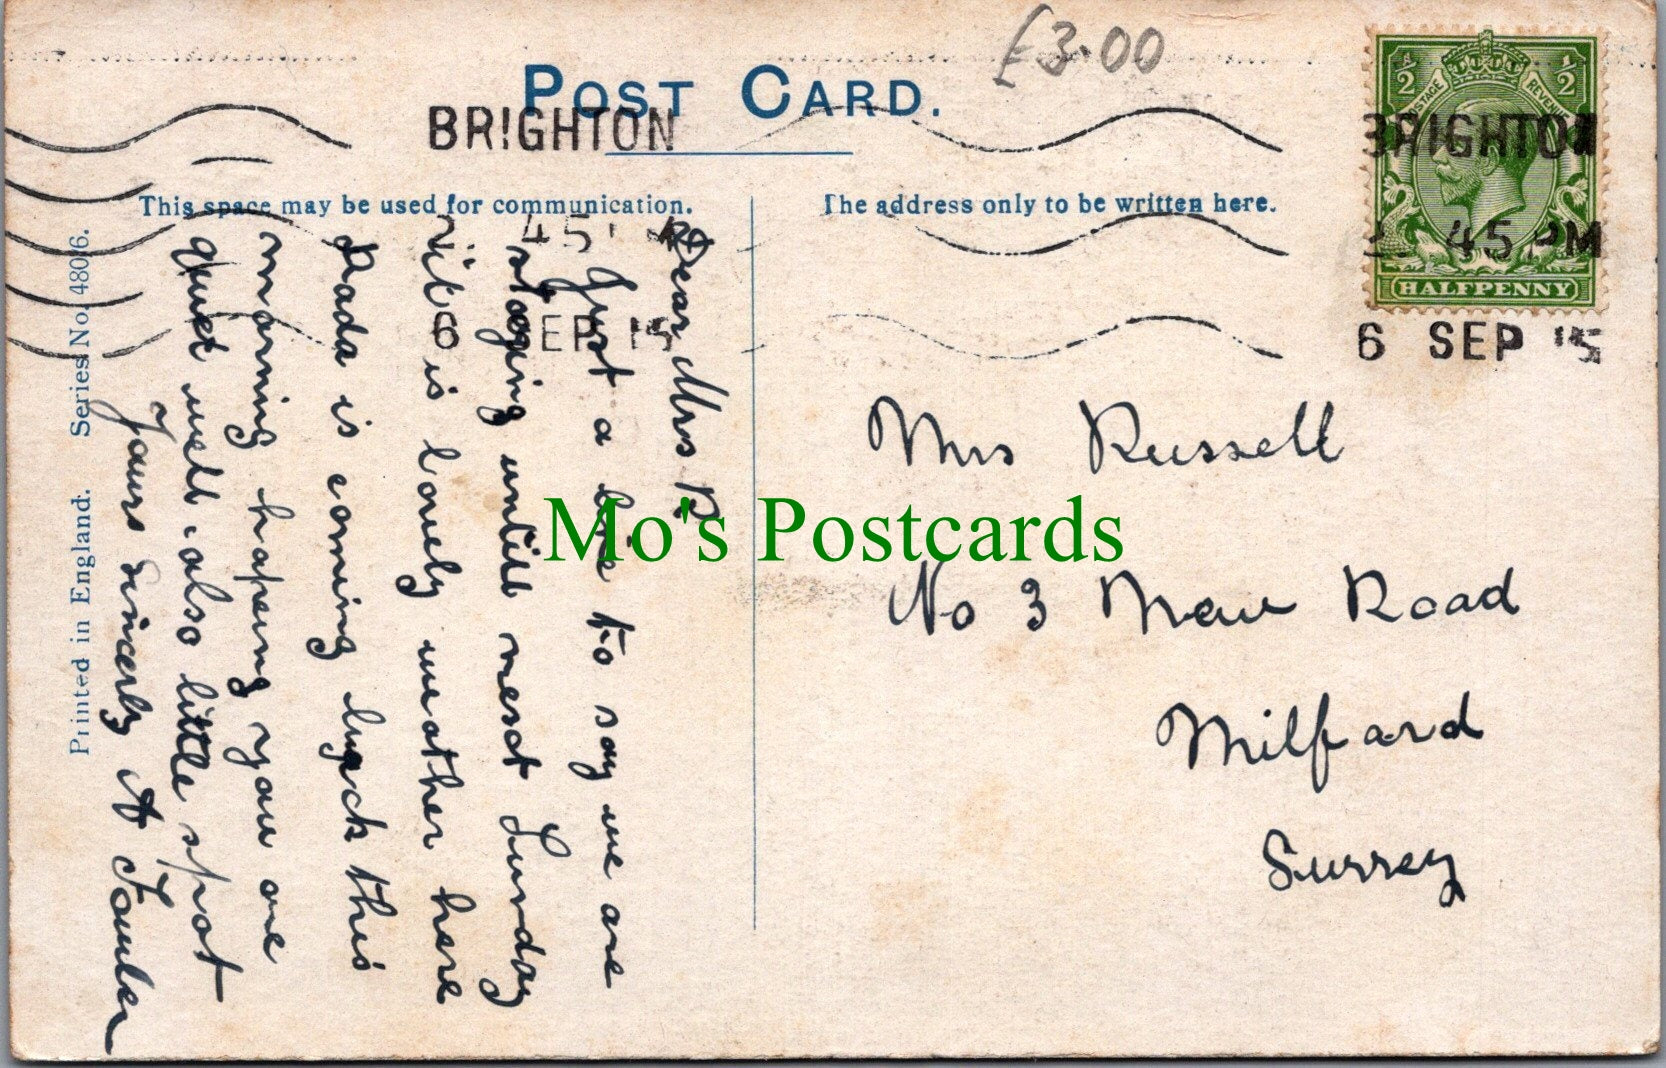 £3.00
POST CARD.
BRIGHTON
BRIGHTON
½ ½
POSTAGE REVENUE
This space may be used for communication.
The address only to be written here.
45 PM
45
HALFPENNY
6 SEP 15
6 SEP 15
Dear Mrs R
Just a line to say we are
staying untill next Sunday
it is lovely weather here
Dada is coming back this
morning hapeing you are
quiet well also little spot
Yours sincerly A Fowler
Mrs Russell
No 3 New Road
Milford
Surrey
Printed in England. Series No. 48026.
Mo's Postcards